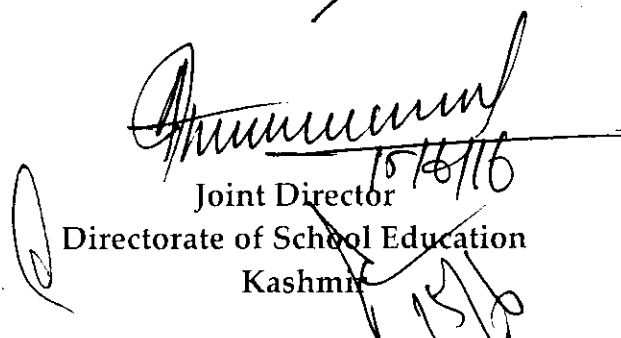 15/6/16
Joint Director
Directorate of School Education
Kashmir
15/6